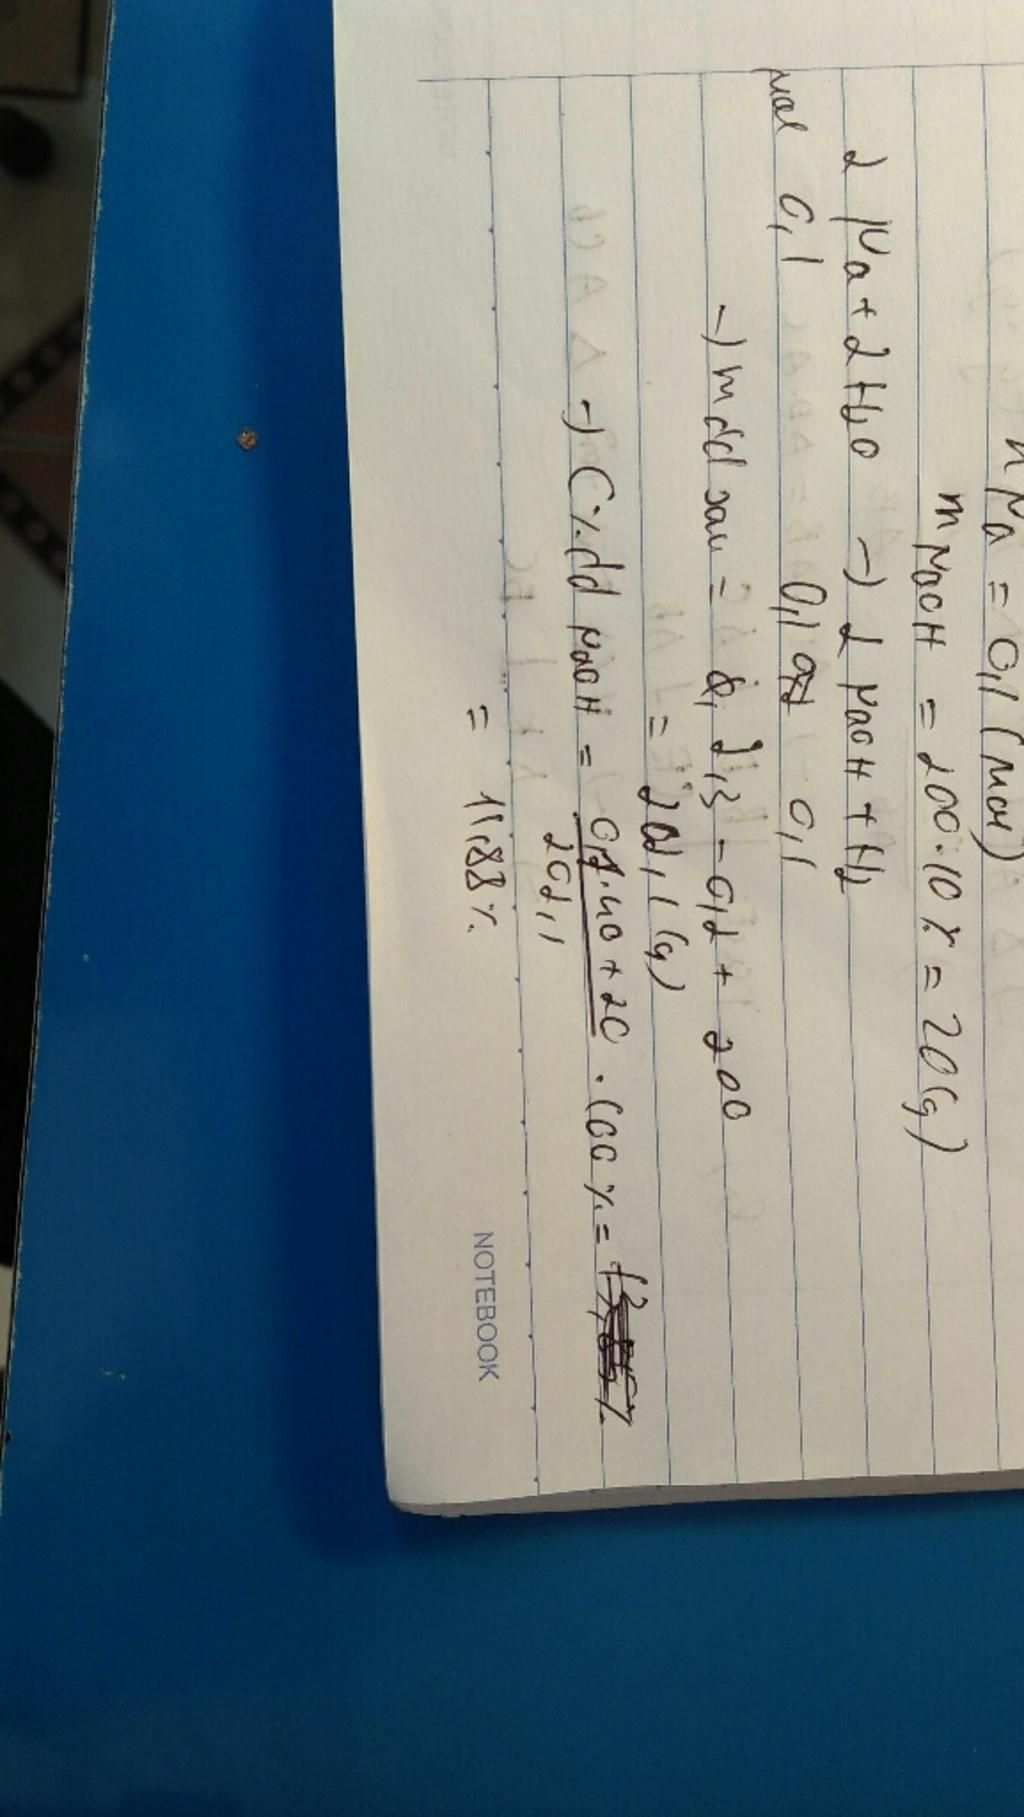 nNa = 0,1 (mol)
mNaOH = 200.10% = 20(g)
2Na + 2H2O -> 2NaOH + H2
mol 0,1 0,1 0,1
-> mdd sau = 2,3 - 0,2 + 200
= 202,1 (g)
-> C% dd NaOH = 0,1.40 + 20 / 202,1 . 100% =
= 11,88%
NOTEBOOK